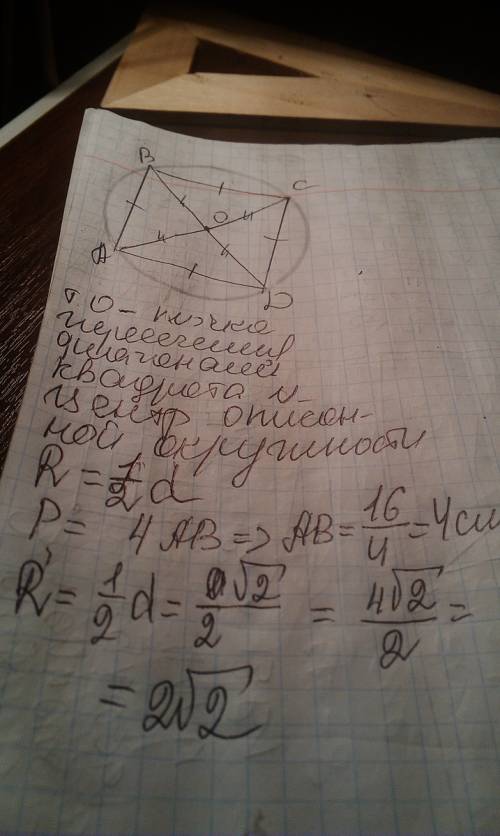 B
C
O
A
D
т O - точка
пересечения
диагоналей
квадрата и
центр описан-
ной окружности
R = 1/2 d
P = 4 AB => AB = 16/4 = 4 см
R = 1/2 d = a√2/2 = 4√2/2 =
= 2√2